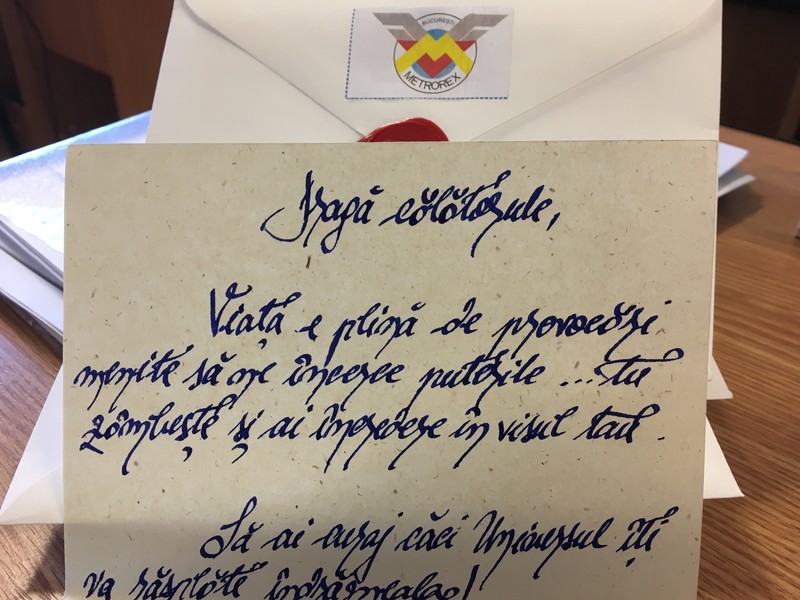 BUCUREȘTI
METROREX
Dragă călătorule,
Viața e plină de provocări
menite să ne încerce puterile ... tu
zâmbește și ai încredere în visul tău.
Să ai curaj căci Universul îți
va răsplăti îndrăzneala!